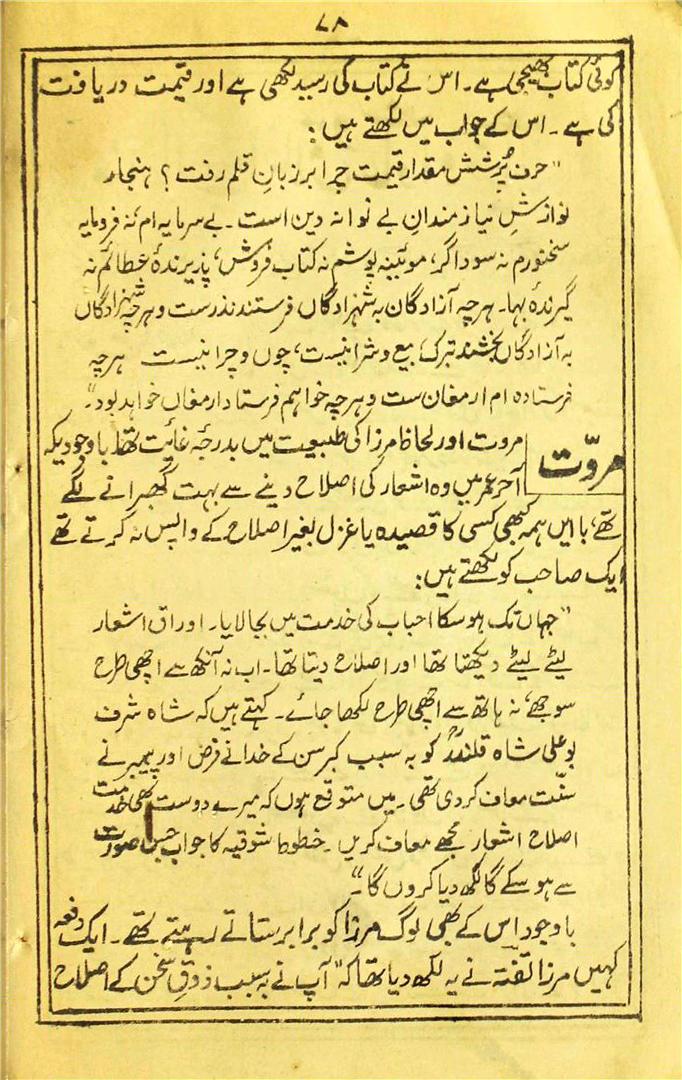 ۷۸
کوئی کتاب بھیجی ہے۔ اس نے کتاب کی رسید لکھی ہے اور قیمت دریافت
کی ہے۔ اس کے جواب میں لکھتے ہیں:
"حرف پُرسشِ مقدار قیمت چرا بر زبانِ قلم رفت؟ ہنجار
نوازشِ نیازمندانِ بے نوا نہ دین است۔ بے سرمایہ ام، نہ فرومایہ
سخنورم نہ سوداگر، موئینہ پوشم نہ کتاب فروش، پذیرندۂ عطائم نہ
گیرندۂ بہا۔ ہرچہ آزادگان بہ شہزادگاں فرستند نذرست و ہرچہ شہزادگاں
بہ آزادگاں بخشند تبرک، بیع و شرا نیست، چون و چرا نیست ہرچہ
فرستادہ ام ارمغان ست و ہرچہ خواہم فرستاد ارمغاں خواہد بود۔"
مروّت
مروت اور لحاظ مرزا کی طبیعت میں بدرجۂ غایت تھا۔ باوجودیکہ
آخر عمر میں وہ اشعار کی اصلاح دینے سے بہت گھبرانے لگے
تھے، بااین ہمہ کبھی کسی کا قصیدہ یا غزل بغیر اصلاح کے واپس نہ کرتے تھے
ایک صاحب کو لکھتے ہیں:
"جہاں تک ہو سکا احباب کی خدمت میں بجا لایا۔ اوراق اشعار
لیٹے لیٹے دیکھتا تھا اور اصلاح دیتا تھا۔ اب نہ آنکھ سے اچھی طرح
سوجھے، نہ ہاتھ سے اچھی طرح لکھا جائے۔ کہتے ہیں کہ شاہ شرف
بو علی شاہ قلندرؒ کو بہ سبب کبر سن کے خدا نے فرض اور پیمبر نے
سنّت معاف کر دی تھی۔ میں متوقع ہوں کہ میرے دوست بھی خدمت
اصلاح اشعار مجھے معاف کریں۔ خطوط شوقیہ کا جواب جس صورت
سے ہو سکے گا لکھ دیا کروں گا۔"
باوجود اس کے بھی لوگ مرزا کو برابر ستاتے رہتے تھے۔ ایک دفعہ
کہیں مرزا تفتہ نے یہ لکھ دیا تھا کہ "آپ نے بہ سبب ذوقِ سخن کے اصلاح